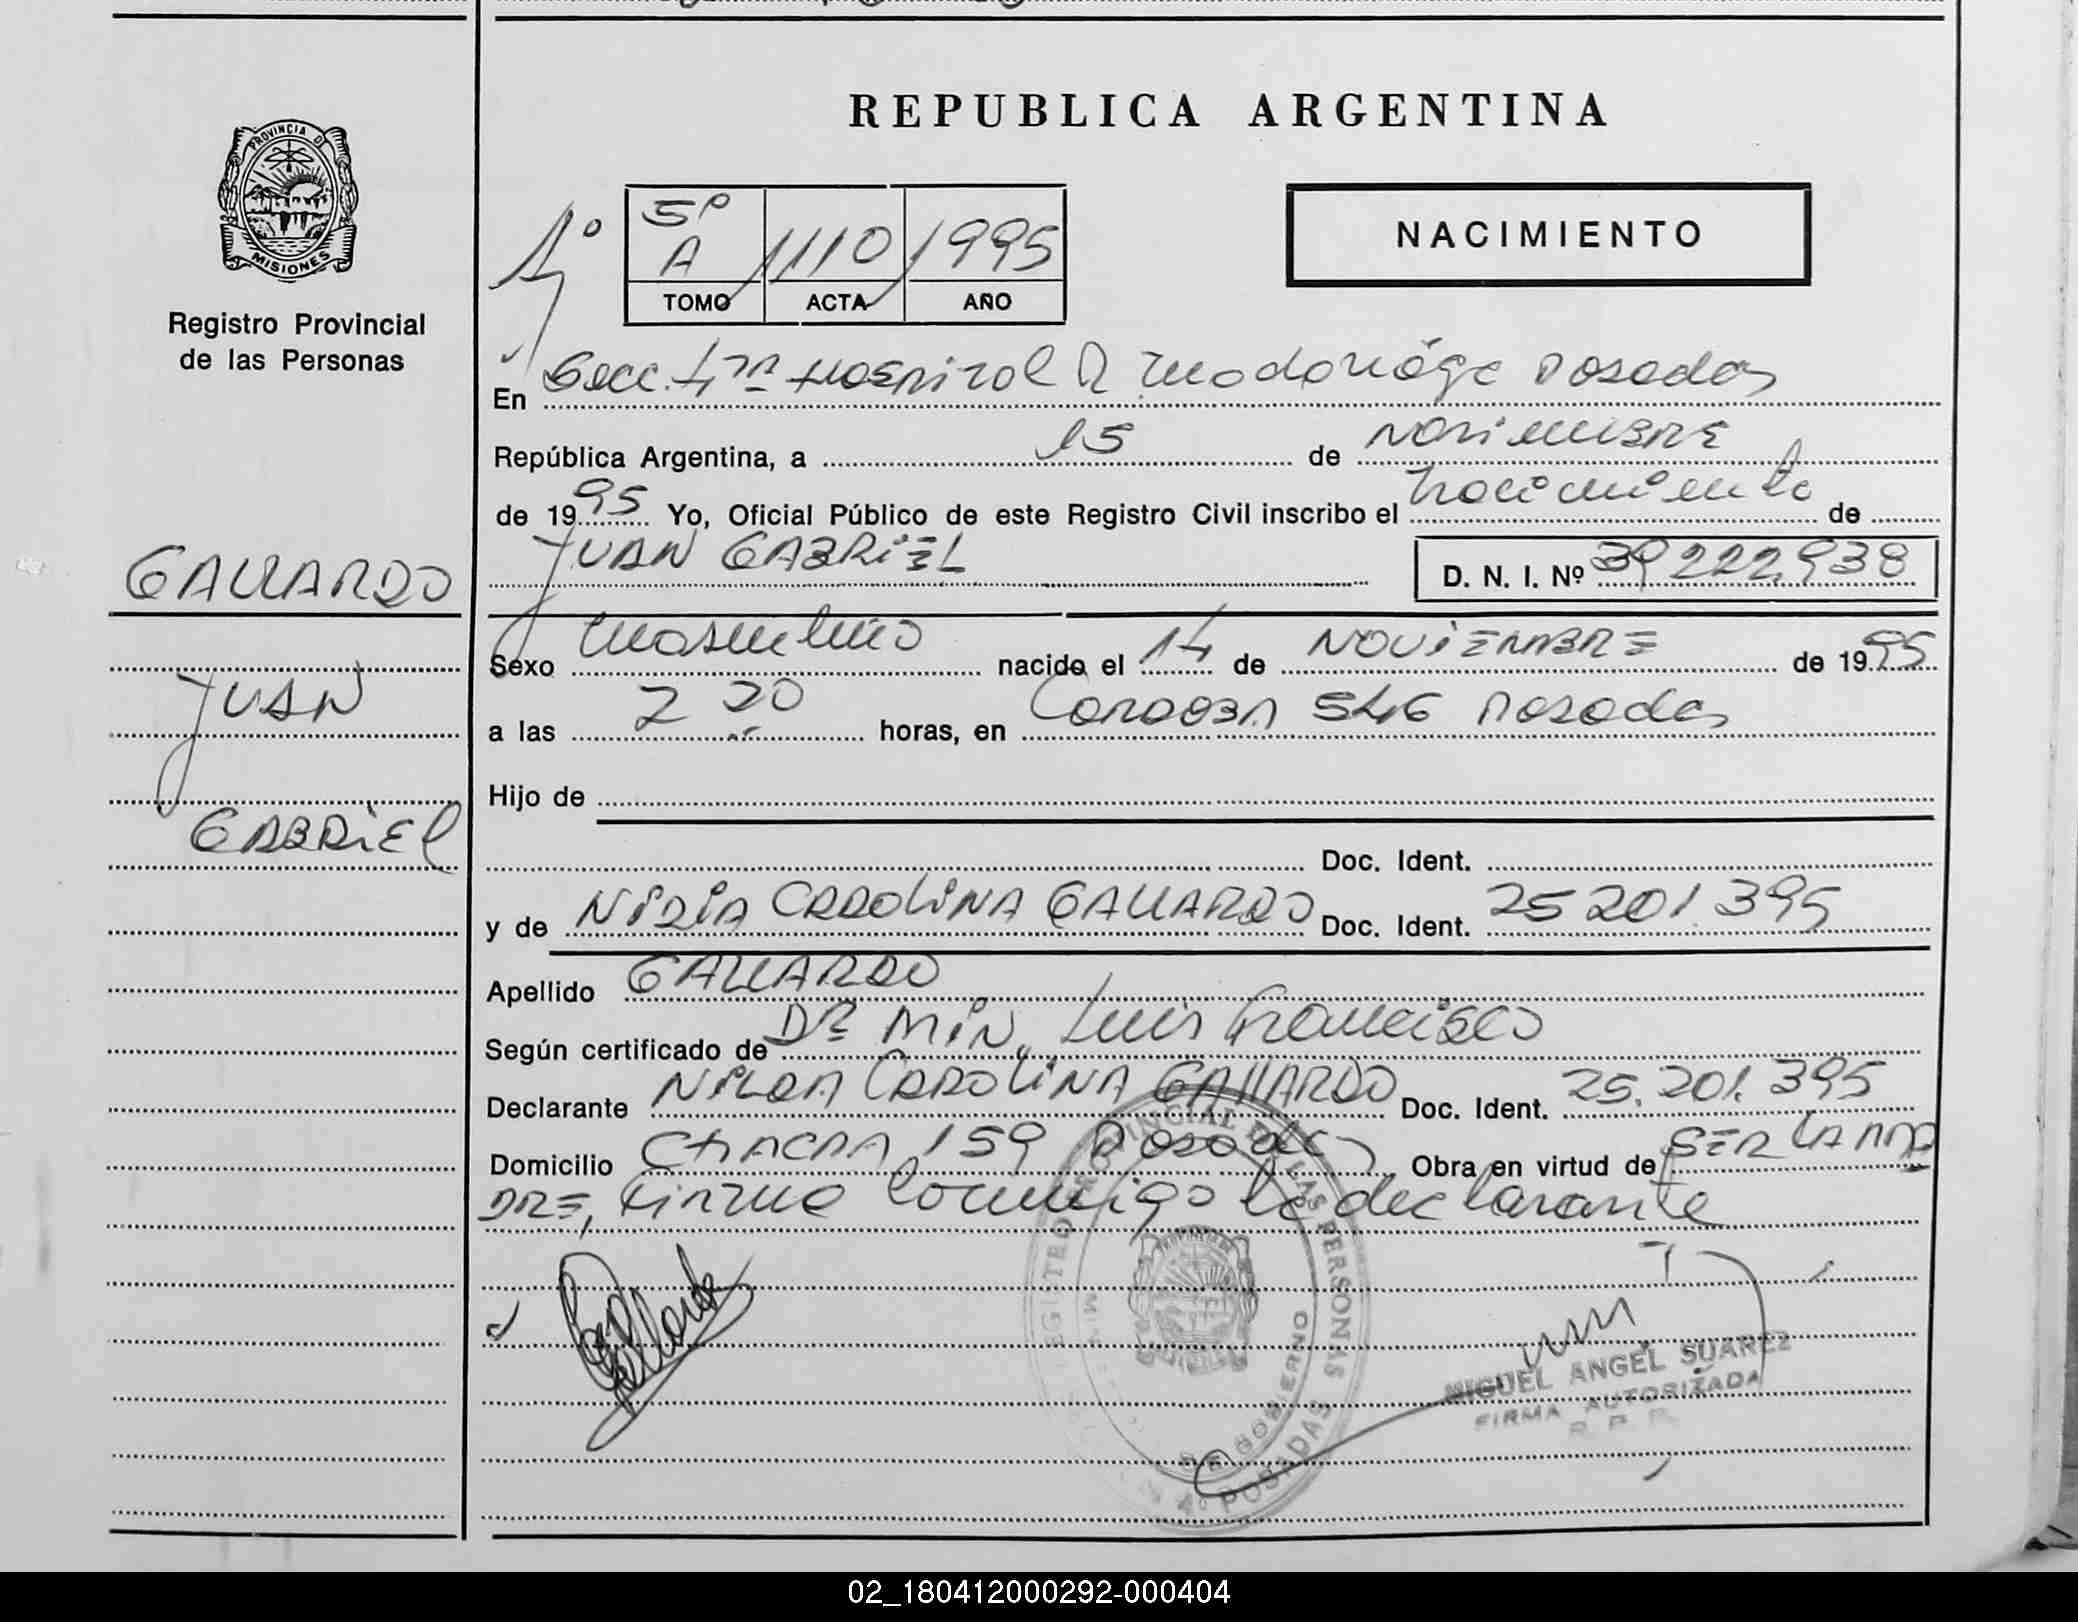 REPUBLICA ARGENTINA
PROVINCIA DE
MISIONES
Registro Provincial
de las Personas
1º
5º
A 1110 1995
TOMO ACTA AÑO
NACIMIENTO
En Secc. 4ta Hospital R Madariaga Posadas
República Argentina, a 15 de Noviembre
de 1995 Yo, Oficial Público de este Registro Civil inscribo el nacimiento de
JUAN GABRIEL D. N. I. Nº 39222.938
GALLARDO
JUAN
GABRIEL
Sexo masculino nacido el 14 de NOVIEMBRE de 1995
a las 2 20 horas, en CORDOBA 546 Posadas
Hijo de
Doc. Ident.
y de NIDIA CAROLINA GALLARDO Doc. Ident. 25 201.395
Apellido GALLARDO
Según certificado de Dr MIN, Luis Francisco
Declarante NILDA CAROLINA GALLARDO Doc. Ident. 25.201.395
Domicilio CHACRA 159 Posadas Obra en virtud de SER LA MA
DRE, firma conmigo la declarante
Gallardo
REGISTRO PROVINCIAL DE LAS PERSONAS
DE GOBIERNO
4º POSADAS
MIGUEL ANGEL SUAREZ
FIRMA AUTORIZADA
R. P. P.
02_180412000292-000404